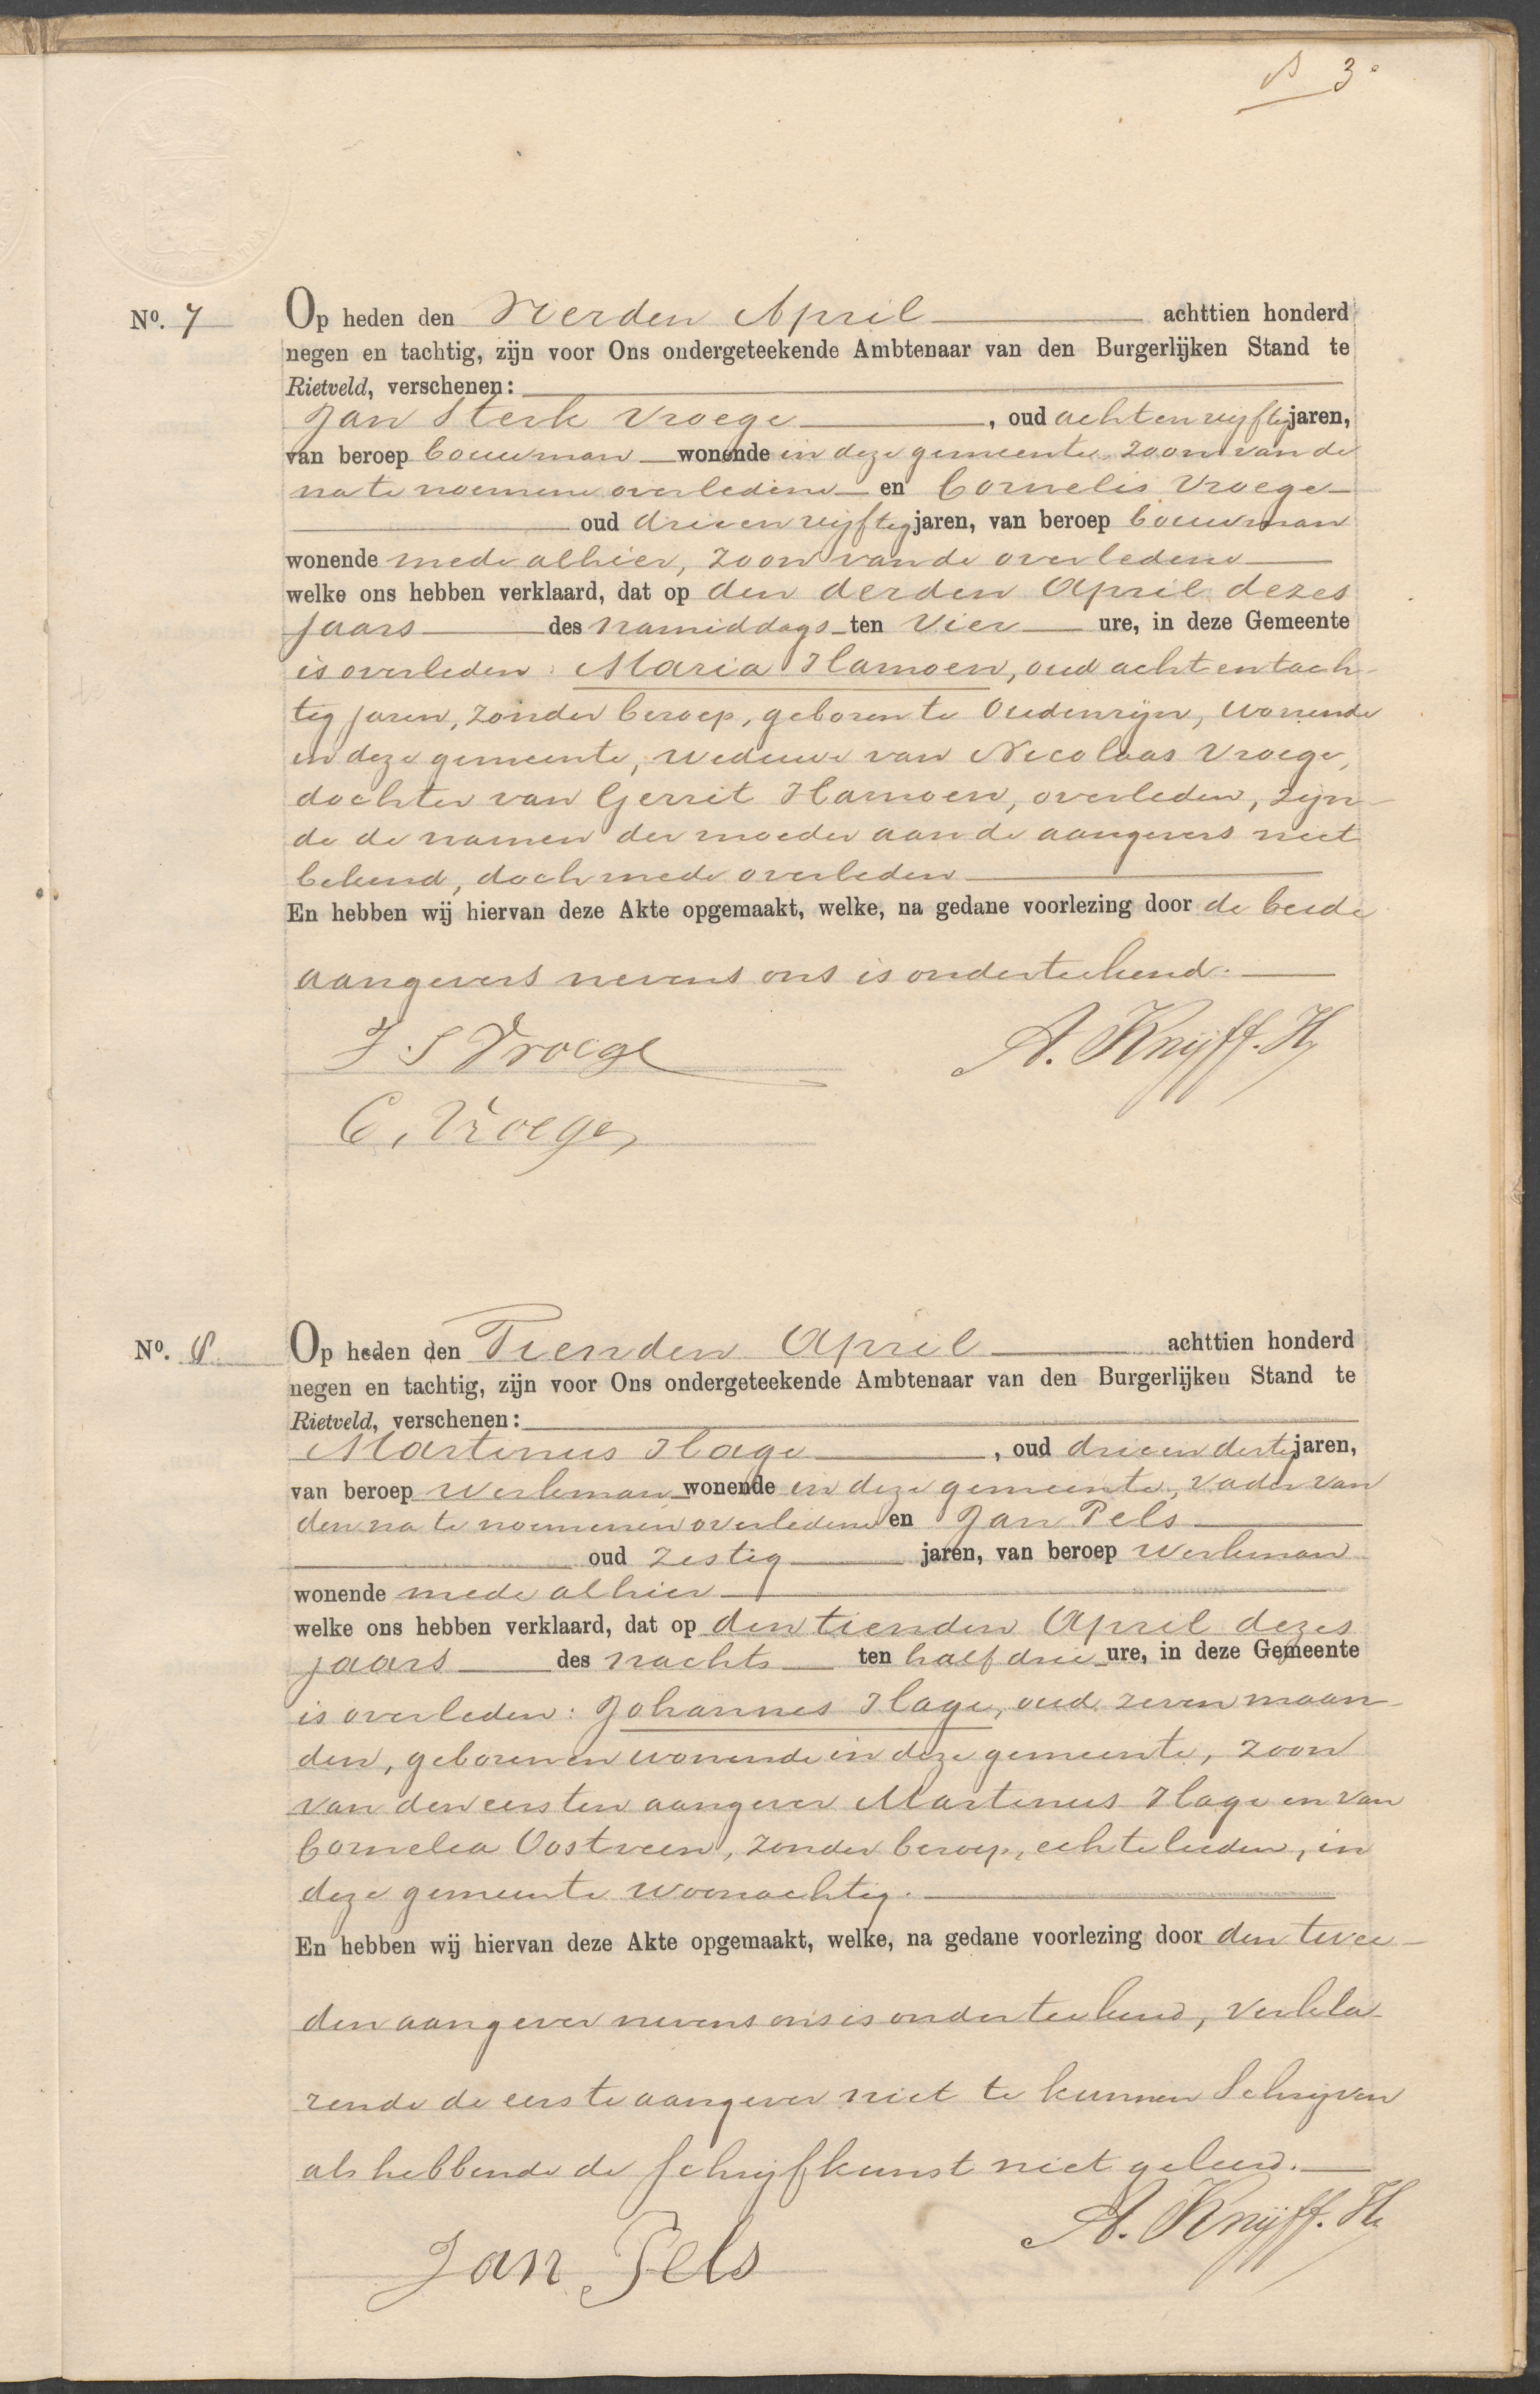 3
No. 7
Op heden den Vierden April achttien honderd
negen en tachtig, zijn voor Ons ondergeteekende Ambtenaar van den Burgerlijken Stand te
Rietveld, verschenen:
Jan Sterk Vroege, oud acht en vijftig jaren,
van beroep bouwman wonende in deze gemeente, zoon van de
na te noemene overledene en Cornelis Vroege
oud drie en vijftig jaren, van beroep bouwman
wonende mede alhier, zoon van de overledene
welke ons hebben verklaard, dat op den derden April dezes
jaars des namiddags ten vier ure, in deze Gemeente
is overleden: Maria Hamoen, oud acht en tach-
tig jaren, zonder beroep, geboren te Oudenrijn, wonende
in deze gemeente, weduwe van Nicolaas Vroege,
dochter van Gerrit Hamoen, overleden, zijn-
de de namen der moeder aan de aangevers niet
bekend, doch mede overleden
En hebben wij hiervan deze Akte opgemaakt, welke, na gedane voorlezing door de beide
aangevers nevens ons is onderteekend.
J. S Vroege
A. Knijff. Hz
C. Vroege
No. 8
Op heden den Tienden April achttien honderd
negen en tachtig, zijn voor Ons ondergeteekende Ambtenaar van den Burgerlijken Stand te
Rietveld, verschenen:
Martinus Hage, oud drie en dertig jaren,
van beroep werkman wonende in deze gemeente, vader van
den na te noemenen overledene en Jan Pels
oud zestig jaren, van beroep werkman
wonende mede alhier
welke ons hebben verklaard, dat op den tienden April dezes
jaars des nachts ten half drie ure, in deze Gemeente
is overleden: Johannes Hage, oud zeven maan-
den, geboren en wonende in deze gemeente, zoon
van den eersten aangever Martinus Hage en van
Cornelia Oostveen, zonder beroep, echtelieden, in
deze gemeente woonachtig.
En hebben wij hiervan deze Akte opgemaakt, welke, na gedane voorlezing door den twee-
den aangever nevens ons is onderteekend, verkla-
rende de eerste aangever niet te kunnen schrijven
als hebbende de schrijfkunst niet geleerd.
A. Knijff. Hz
Jan Pels